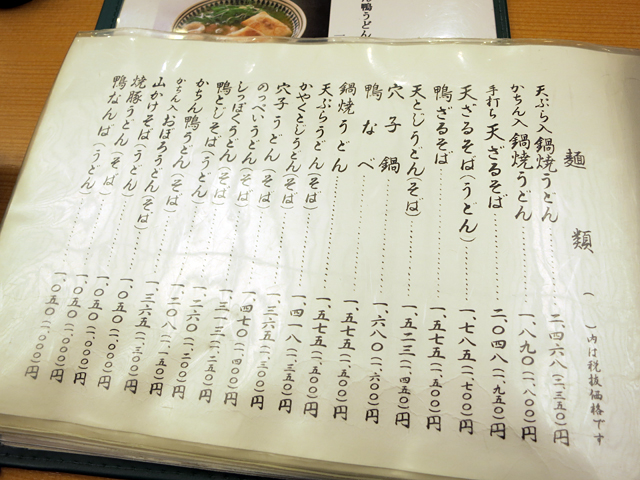 ん鴨うどん
麺類 ( )内は税抜価格です
天ぷら入鍋焼うどん……二、四六八(二、三五〇)円
かちん入鍋焼うどん……一、八九〇(一、八〇〇)円
手打ち天ざるそば……二、〇四八(一、九五〇)円
天ざるそば(うどん)……一、七八五(一、七〇〇)円
鴨ざるそば……一、五七五(一、五〇〇)円
天とじうどん(そば)……一、五二三(一、四五〇)円
穴子鍋……一、六八〇(一、六〇〇)円
鴨なべ……一、五七五(一、五〇〇)円
鍋焼うどん……一、五七五(一、五〇〇)円
天ぷらうどん(そば)……一、四一八(一、三五〇)円
かやくとじうどん(そば)……一、三六五(一、三〇〇)円
穴子うどん(そば)……一、四七〇(一、四〇〇)円
のっぺいうどん(そば)……一、三一三(一、二五〇)円
しっぽくうどん(そば)……一、二六〇(一、二〇〇)円
鴨とじそば(うどん)……一、二〇八(一、一五〇)円
かちん鴨うどん(そば)……一、三六五(一、三〇〇)円
かちん入おぼろうどん(そば)……一、〇五〇(一、〇〇〇)円
山かけそば(うどん)……一、〇五〇(一、〇〇〇)円
焼豚うどん(そば)……一、〇五〇(一、〇〇〇)円
鴨なんば(うどん)……一、〇五〇(一、〇〇〇)円